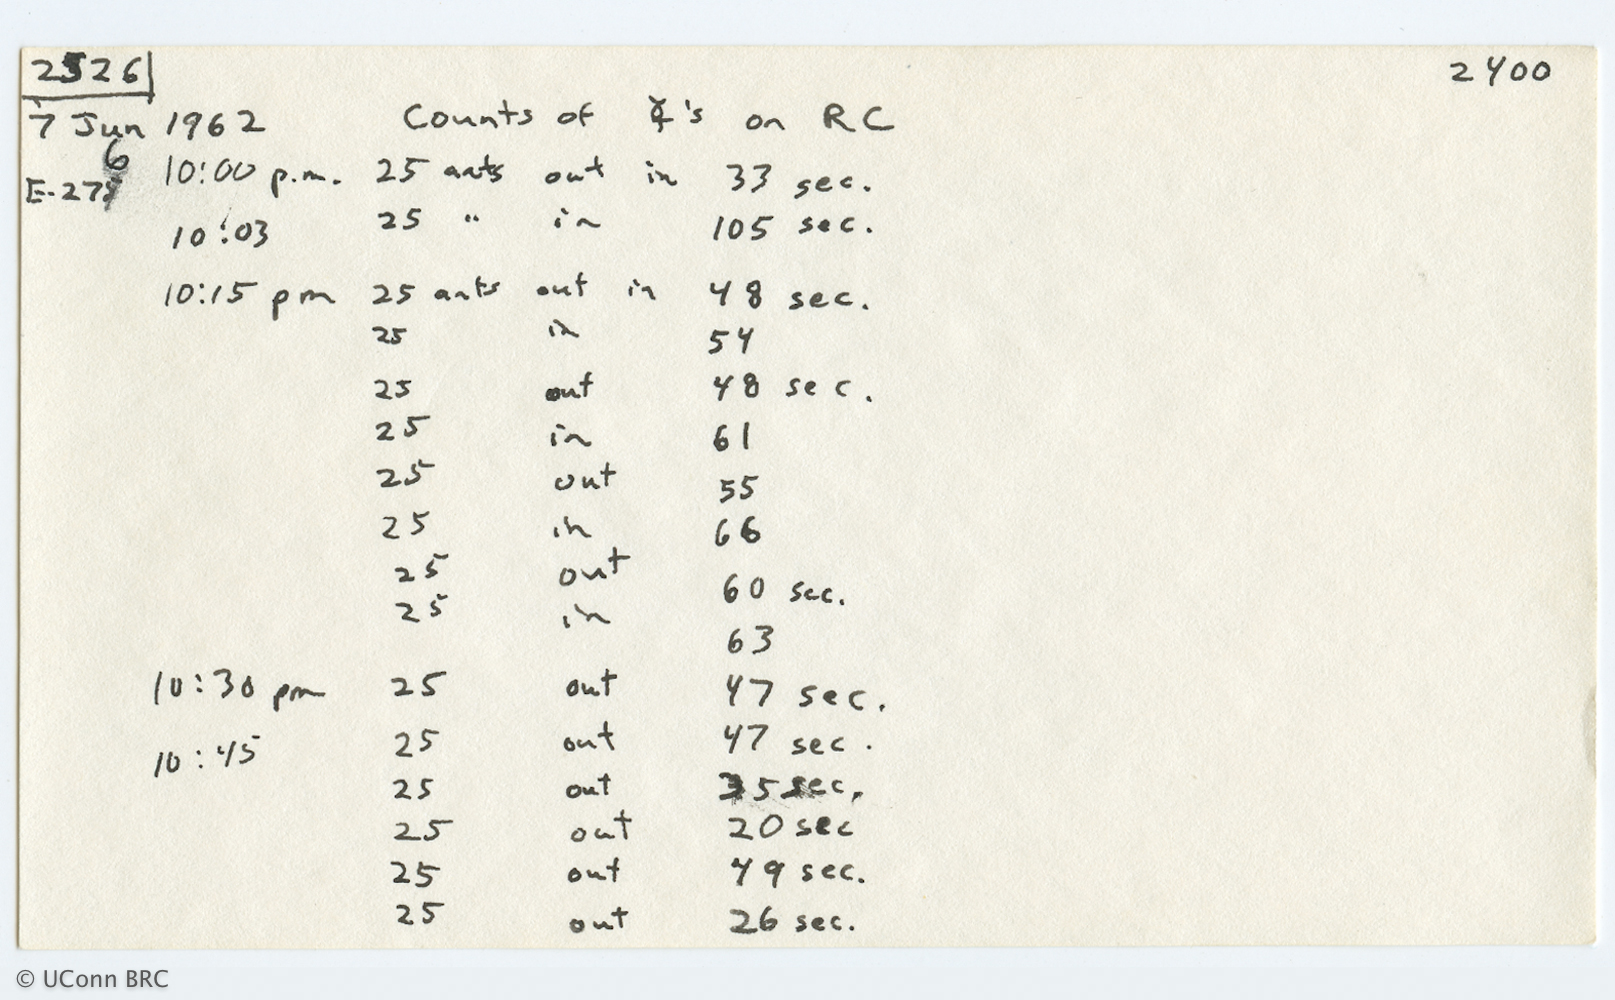 2526 2400
7 Jun 1962 Counts of ☿'s on RC
10:00 p.m. 25 ants out in 33 sec.
E-276
10:03 25 " in 105 sec.
10:15 pm 25 ants out in 48 sec.
25 in 54
25 out 48 sec.
25 in 61
25 out 55
25 in 66
25 out 60 sec.
25 in 63
10:30 pm 25 out 47 sec.
10:45 25 out 47 sec.
25 out 35 sec.
25 out 20 sec
25 out 49 sec.
25 out 26 sec.
© UConn BRC